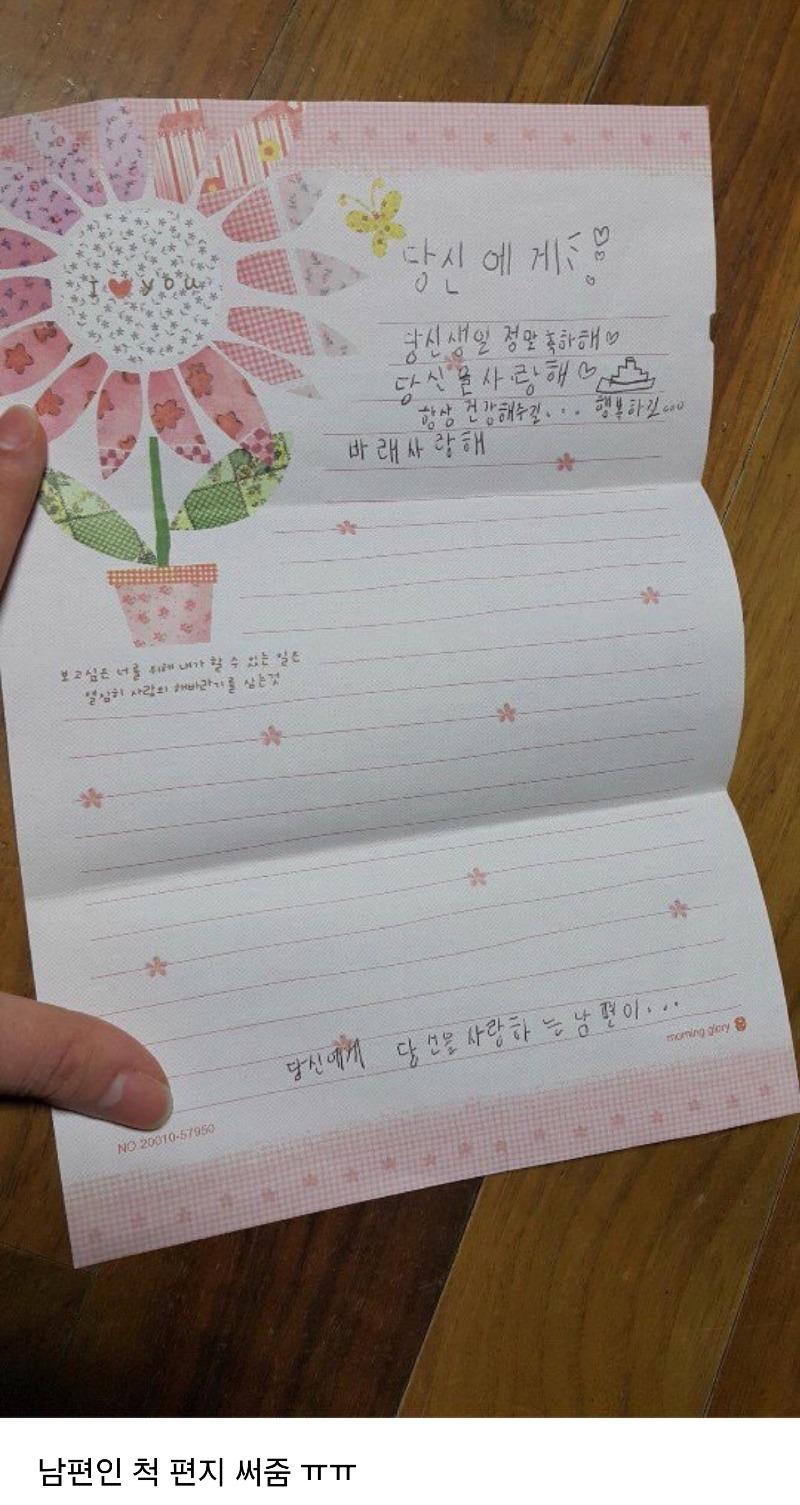 I ♥ you
당신에게 ♡
당신생일 정말 축하해♡
당신을 사랑해♡
항상 건강해주길... 행복하길...
바래사랑해
보고싶은 너를 위해 내가 할 수 있는 일은
열심히 사랑의 해바라기를 심는것
당신에게 당신을 사랑하는 남편이...
morning glory
NO.20010-57950
남편인 척 편지 써줌 ㅠㅠ